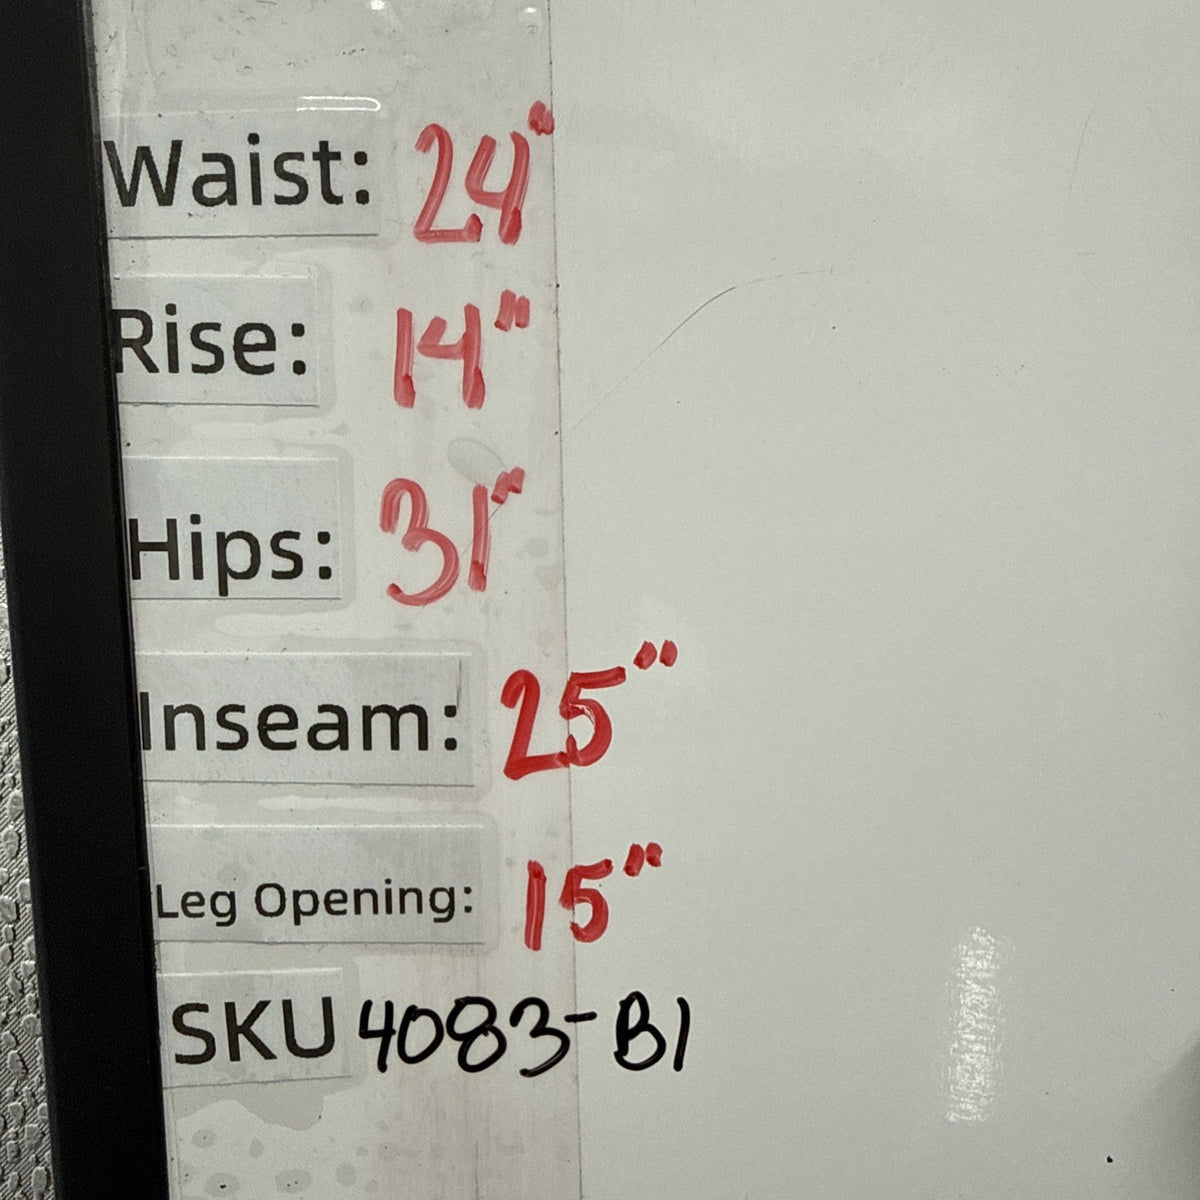 Waist: 24"
Rise: 14"
Hips: 31"
Inseam: 25"
Leg Opening: 15"
SKU 4083-B1